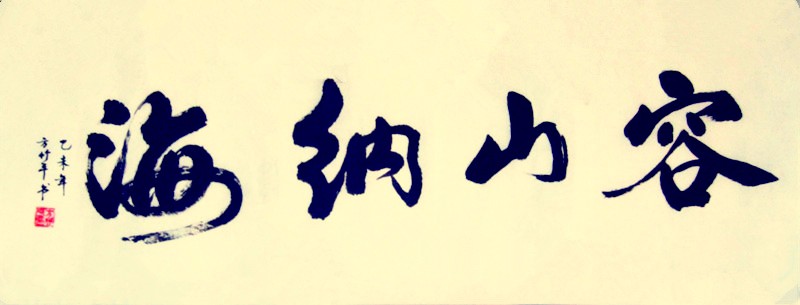 容山纳海
乙未年
方竹平书